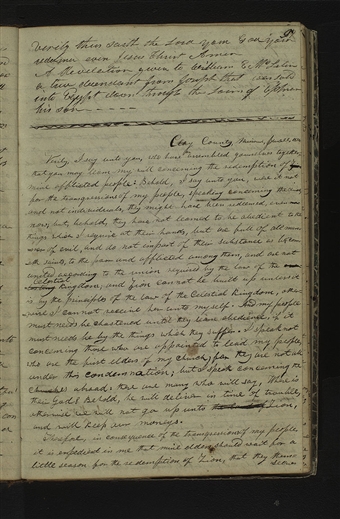 Verely thus saith the Lord your God your
redeemer even Jesus Christ Amen
A Revelation given to William E McLelin
a true decendant from Joseph that was sold
into Egypt down through the loins of Ephraim
his son
Clay County,
Verily, I say unto you, who have assembled yourselves together,
that you may learn my will concerning the redemption of
mine afflicted people: Behold, I say unto you, were it not
for the transgressions of my people, speaking concerning the
and not individuals, they might have been redeemed, even
now; but, behold, they have not learned to be obedient to the
things which I require at their hands, but are full of all man
ner of evil, and do not impart of their substance as becom
eth saints, to the poor and afflicted among them, and are not
united according to the union required by the law of the
Celestial kingdom; and Zion cannot be built up unless it
is by the principles of the law of the Celestial Kingdom, other
wise I cannot receive her unto myself. And my people
must needs be chastened until they learn obedience, if it
must needs be by the things which they suffer. I speak not
concerning those who are appointed to lead my people,
who are the first elders of my church, for they are not all
under this condemnation; but I speak concerning the
abroad: there are many who will say, Where is
their God? Behold, he will deliver in time of trouble,
otherwise we will not go up unto Zion,
and will keep our moneys.
Therefore, in consequence of the transgressions of my people,
it is expedient in me that mine elders should wait for a
little season for the redemption of Zion, that they them
selves